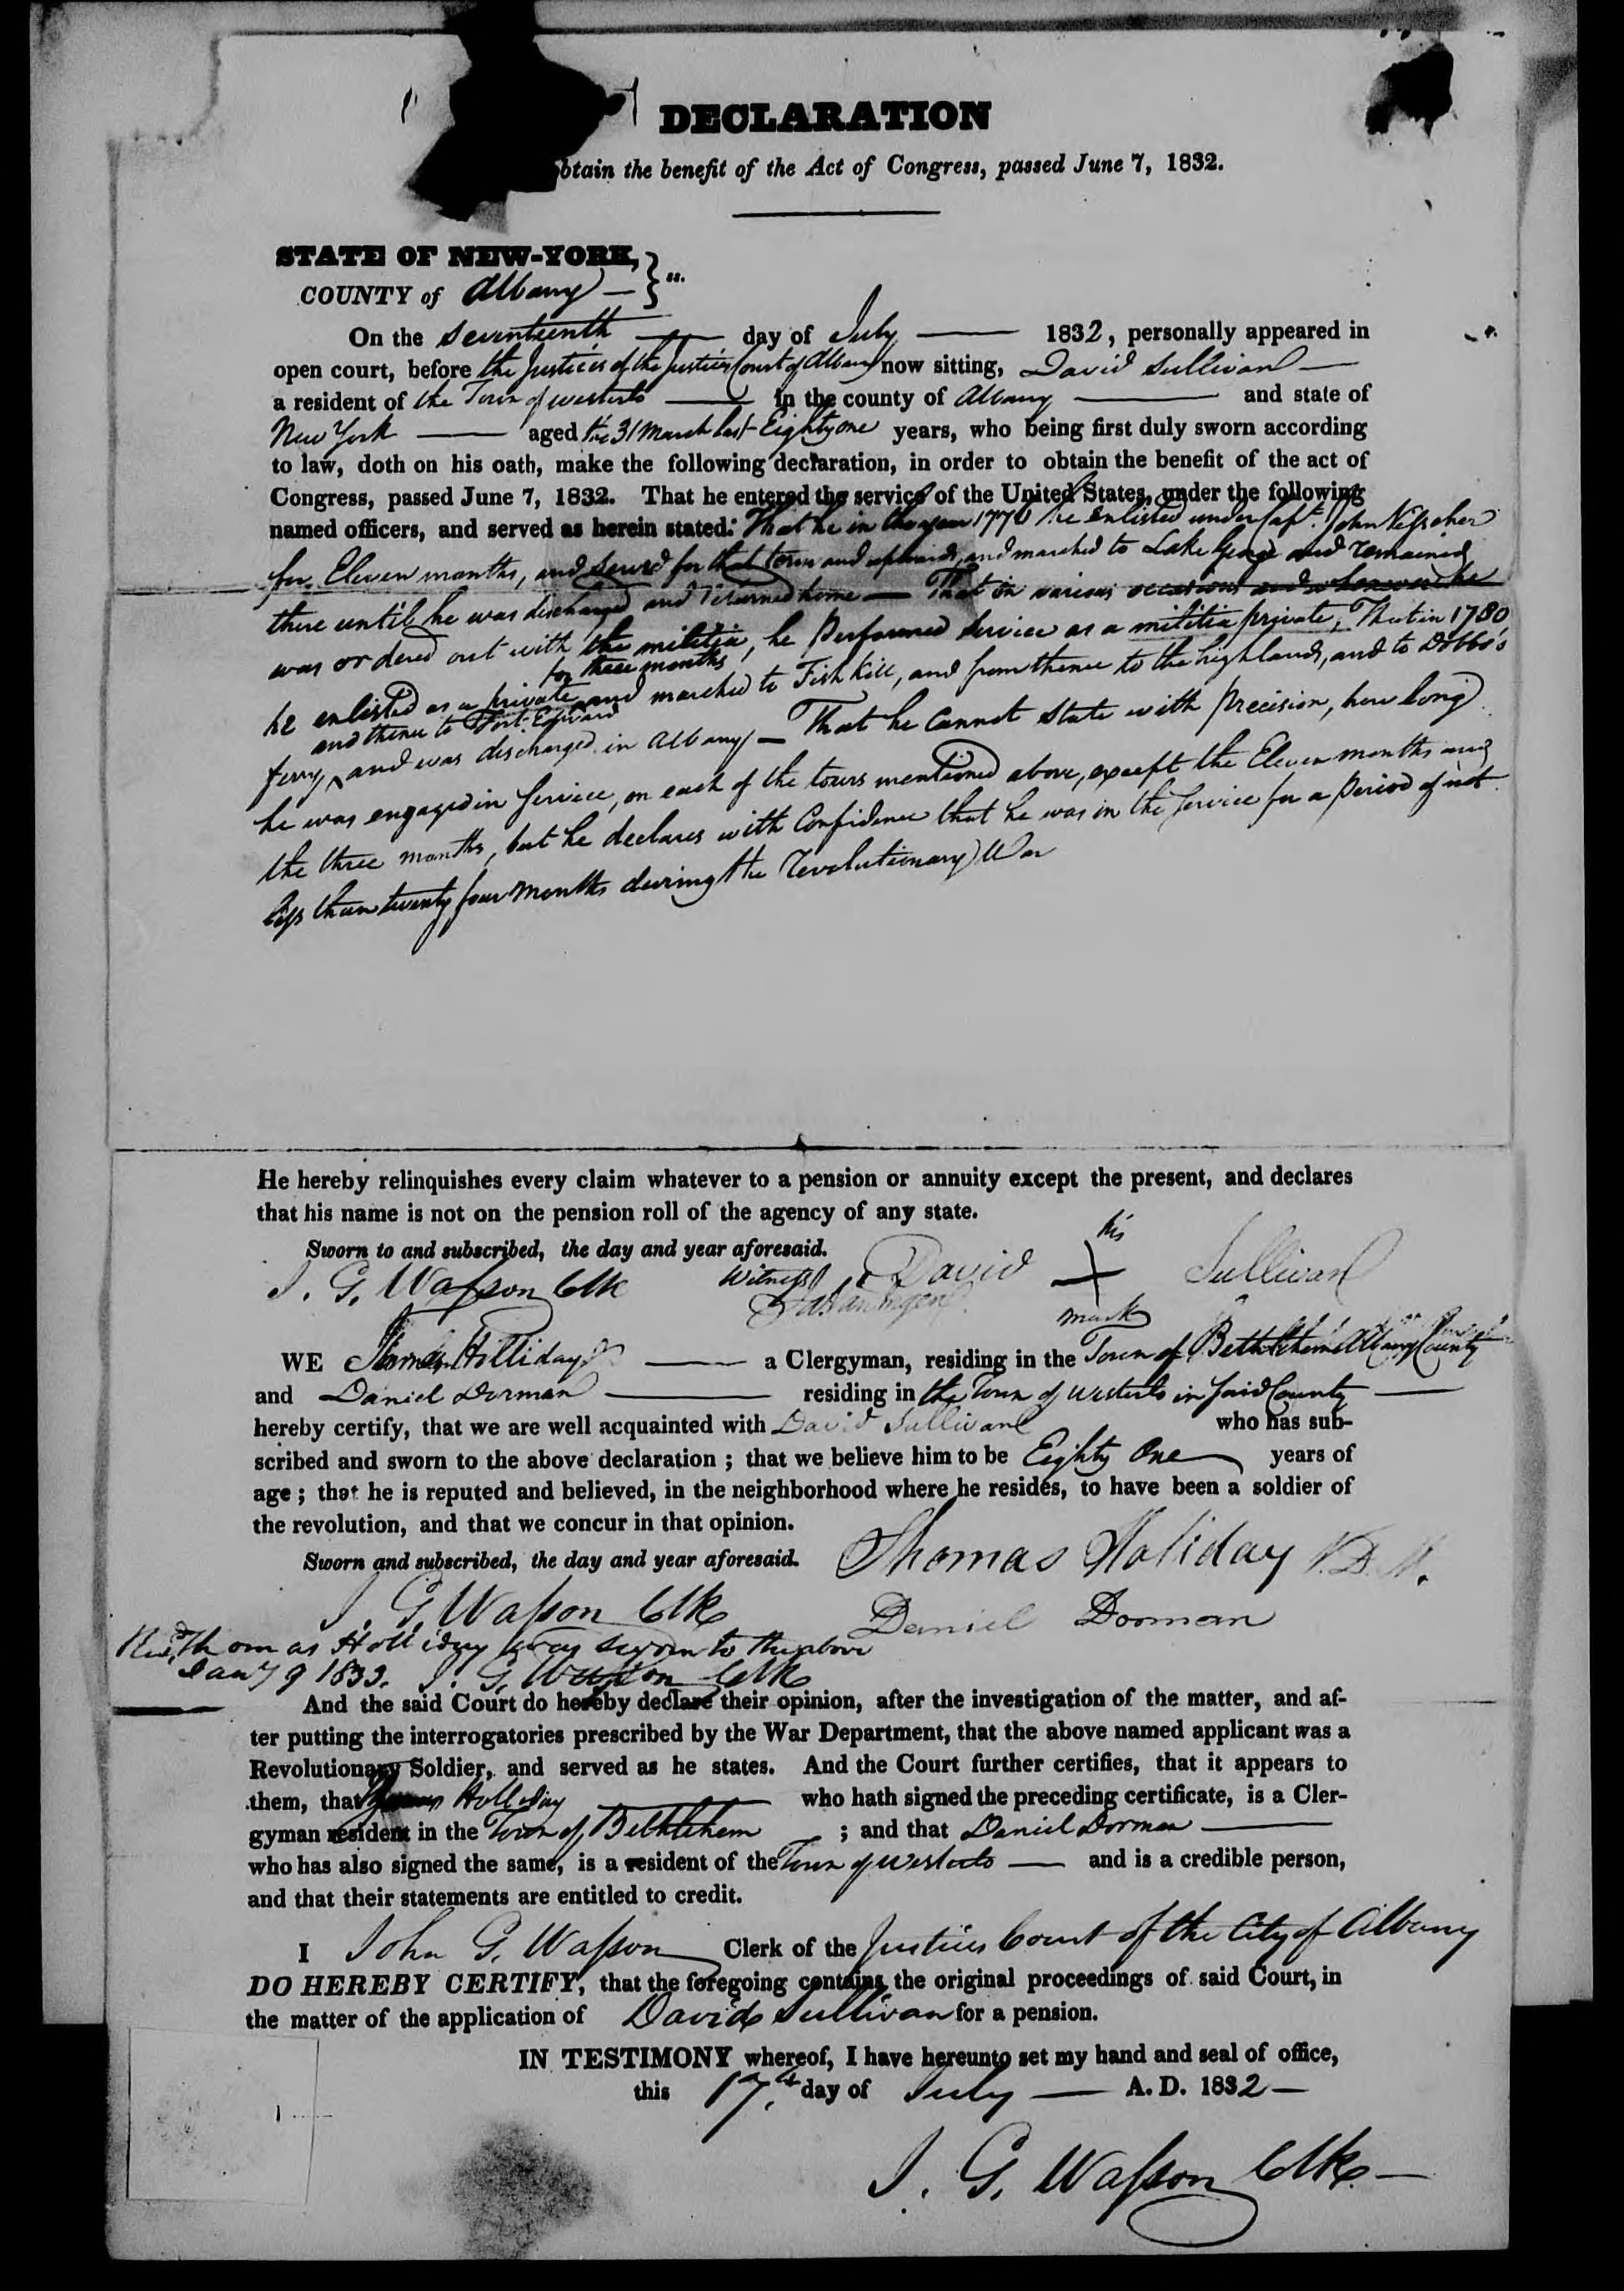 DECLARATION
obtain the benefit of the Act of Congress, passed June 7, 1832.
STATE OF NEW-YORK,
COUNTY of Albany } ss.
On the Seventeenth day of July 1832, personally appeared in
open court, before the Justices of the Justices Court of Albany now sitting, David Sullivan
a resident of the Town of Westerlo in the county of Albany and state of
New York aged the 31 March last Eighty one years, who being first duly sworn according
to law, doth on his oath, make the following declaration, in order to obtain the benefit of the act of
Congress, passed June 7, 1832. That he entered the service of the United States, under the following
named officers, and served as herein stated: That he in the year 1776 he enlisted under Capt. John
for Eleven months, and served for that term and upwards, and marched to Lake George and remained
there until he was discharged and returned home — That on various occasions and whenever he
was ordered out with the militia, he performed service as a militia private, That in 1780
for three months
he enlisted as a private and marched to Fish Kill, and from thence to the highlands, and to Dobbs's
and thence to Fort Edward
ferry, and was discharged in Albany — That he cannot state with precision, how long
he was engaged in service, on each of the tours mentioned above, except the Eleven months and
the three months, but he declares with confidence that he was in the service for a period of not
less than twenty four months during the revolutionary War
He hereby relinquishes every claim whatever to a pension or annuity except the present, and declares
that his name is not on the pension roll of the agency of any state.
Sworn to and subscribed, the day and year aforesaid.
his
J. G. Wasson Clk Witness David + Sullivan
mark
WE Thomas Holliday a Clergyman, residing in the Town of Bethlehem Albany County
and Daniel Dorman residing in the Town of Westerlo in said County
hereby certify, that we are well acquainted with David Sullivan who has sub-
scribed and sworn to the above declaration ; that we believe him to be Eighty One years of
age ; that he is reputed and believed, in the neighborhood where he resides, to have been a soldier of
the revolution, and that we concur in that opinion.
Sworn and subscribed, the day and year aforesaid. Thomas Holiday V.D.M.
J. G. Wasson Clk Daniel Dorman
Revd. Thomas Holliday was sworn to the above
Jany 9 1833. J. G. Wasson Clk
And the said Court do hereby declare their opinion, after the investigation of the matter, and af-
ter putting the interrogatories prescribed by the War Department, that the above named applicant was a
Revolutionary Soldier, and served as he states. And the Court further certifies, that it appears to
them, that Thomas Holliday who hath signed the preceding certificate, is a Cler-
gyman resident in the Town of Bethlehem ; and that Daniel Dorman
who has also signed the same, is a resident of the Town of Westerlo and is a credible person,
and that their statements are entitled to credit.
I John G. Wasson Clerk of the Justices Court of the City of Albany
DO HEREBY CERTIFY, that the foregoing contains the original proceedings of said Court, in
the matter of the application of David Sullivan for a pension.
IN TESTIMONY whereof, I have hereunto set my hand and seal of office,
this 17th day of July A. D. 1832
J. G. Wasson Clk.